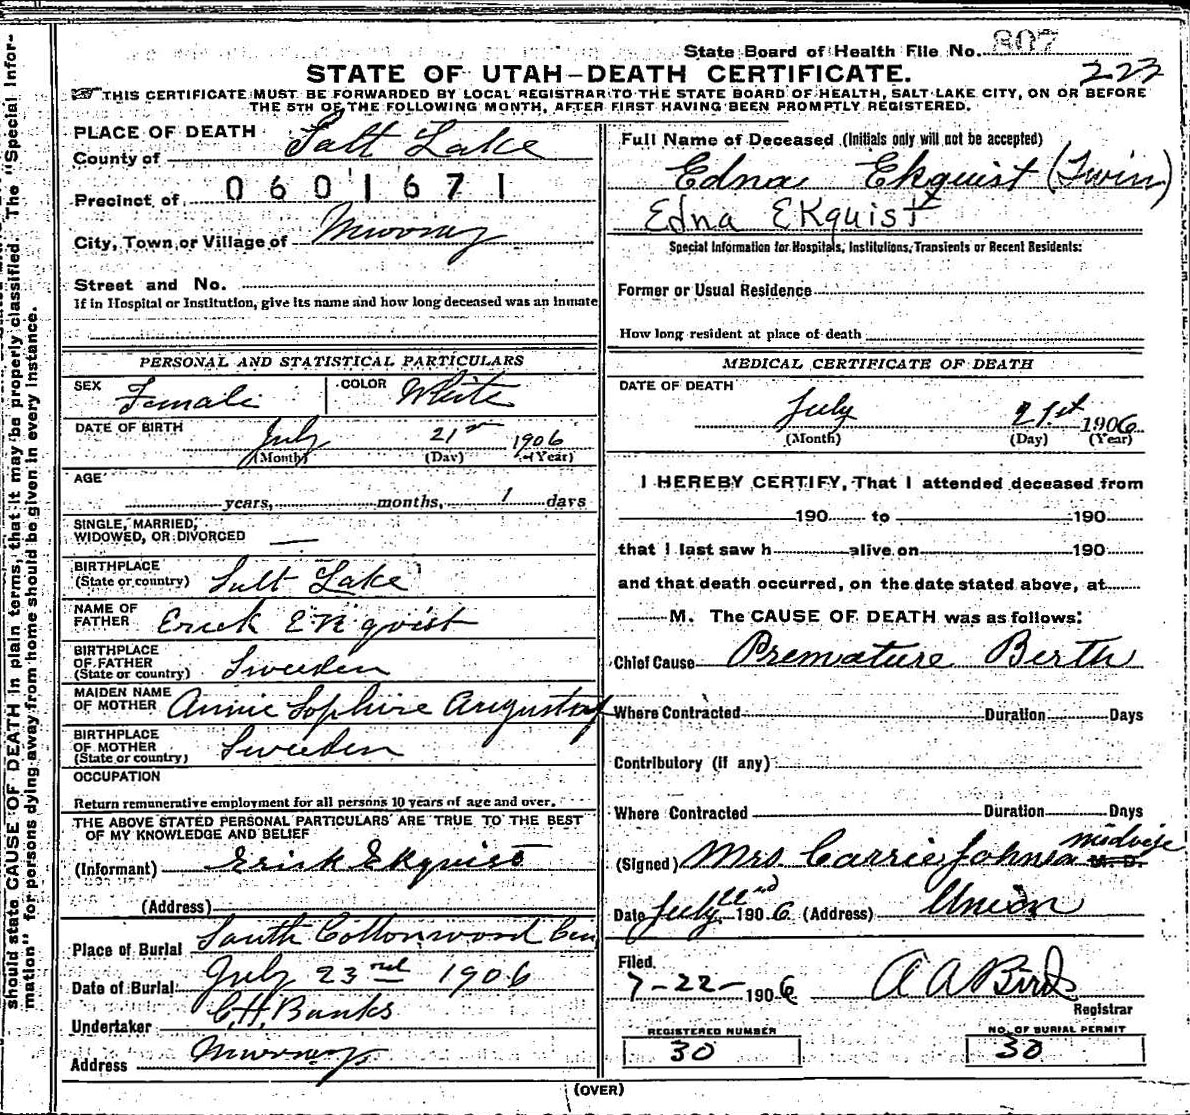 State Board of Health File No. 807
223
STATE OF UTAH—DEATH CERTIFICATE.
THIS CERTIFICATE MUST BE FORWARDED BY LOCAL REGISTRAR TO THE STATE BOARD OF HEALTH, SALT LAKE CITY, ON OR BEFORE
THE 5TH OF THE FOLLOWING MONTH, AFTER FIRST HAVING BEEN PROMPTLY REGISTERED.
PLACE OF DEATH
County of Salt Lake
Precinct of 0601671
City, Town or Village of Murray
Street and No.
If in Hospital or Institution, give its name and how long deceased was an inmate
PERSONAL AND STATISTICAL PARTICULARS
SEX Female COLOR White
DATE OF BIRTH July 21st 1906
(Month) (Day) (Year)
AGE
years, months, 1 days
SINGLE, MARRIED,
WIDOWED, OR DIVORCED —
BIRTHPLACE
(State or country) Salt Lake
NAME OF
FATHER Erick Ekqvist
BIRTHPLACE
OF FATHER
(State or country) Sweeden
MAIDEN NAME
OF MOTHER Annie Sophire Augustaf
BIRTHPLACE
OF MOTHER
(State or country) Sweeden
OCCUPATION
Return remunerative employment for all persons 10 years of age and over.
THE ABOVE STATED PERSONAL PARTICULARS ARE TRUE TO THE BEST
OF MY KNOWLEDGE AND BELIEF
(Informant) Erick Ekquist
(Address)
Place of Burial South Cottonwood Cem
Date of Burial July 23rd 1906
Undertaker C.H. Banks
Address Murray
Full Name of Deceased (Initials only will not be accepted)
Edna Ekquist (Twin)
Edna Ekquist
Special Information for Hospitals, Institutions, Transients or Recent Residents:
Former or Usual Residence
How long resident at place of death
MEDICAL CERTIFICATE OF DEATH
DATE OF DEATH
July 21st 1906
(Month) (Day) (Year)
I HEREBY CERTIFY, That I attended deceased from
190 to 190
that I last saw h alive on 190
and that death occurred, on the date stated above, at
M. The CAUSE OF DEATH was as follows:
Chief Cause Premature Berth
Where Contracted Duration Days
Contributory (if any)
Where Contracted Duration Days
(Signed) Mrs Carrie Johnson midwife M. D.
Date July 22nd 1906 (Address) Union
Filed
7-22-1906 A A Bird
Registrar
REGISTERED NUMBER
30
NO. OF BURIAL PERMIT
30
(OVER)
should state CAUSE OF DEATH in plain terms, that it may be properly classified. The "Special Infor-
mation" for persons dying away from home should be given in every instance.